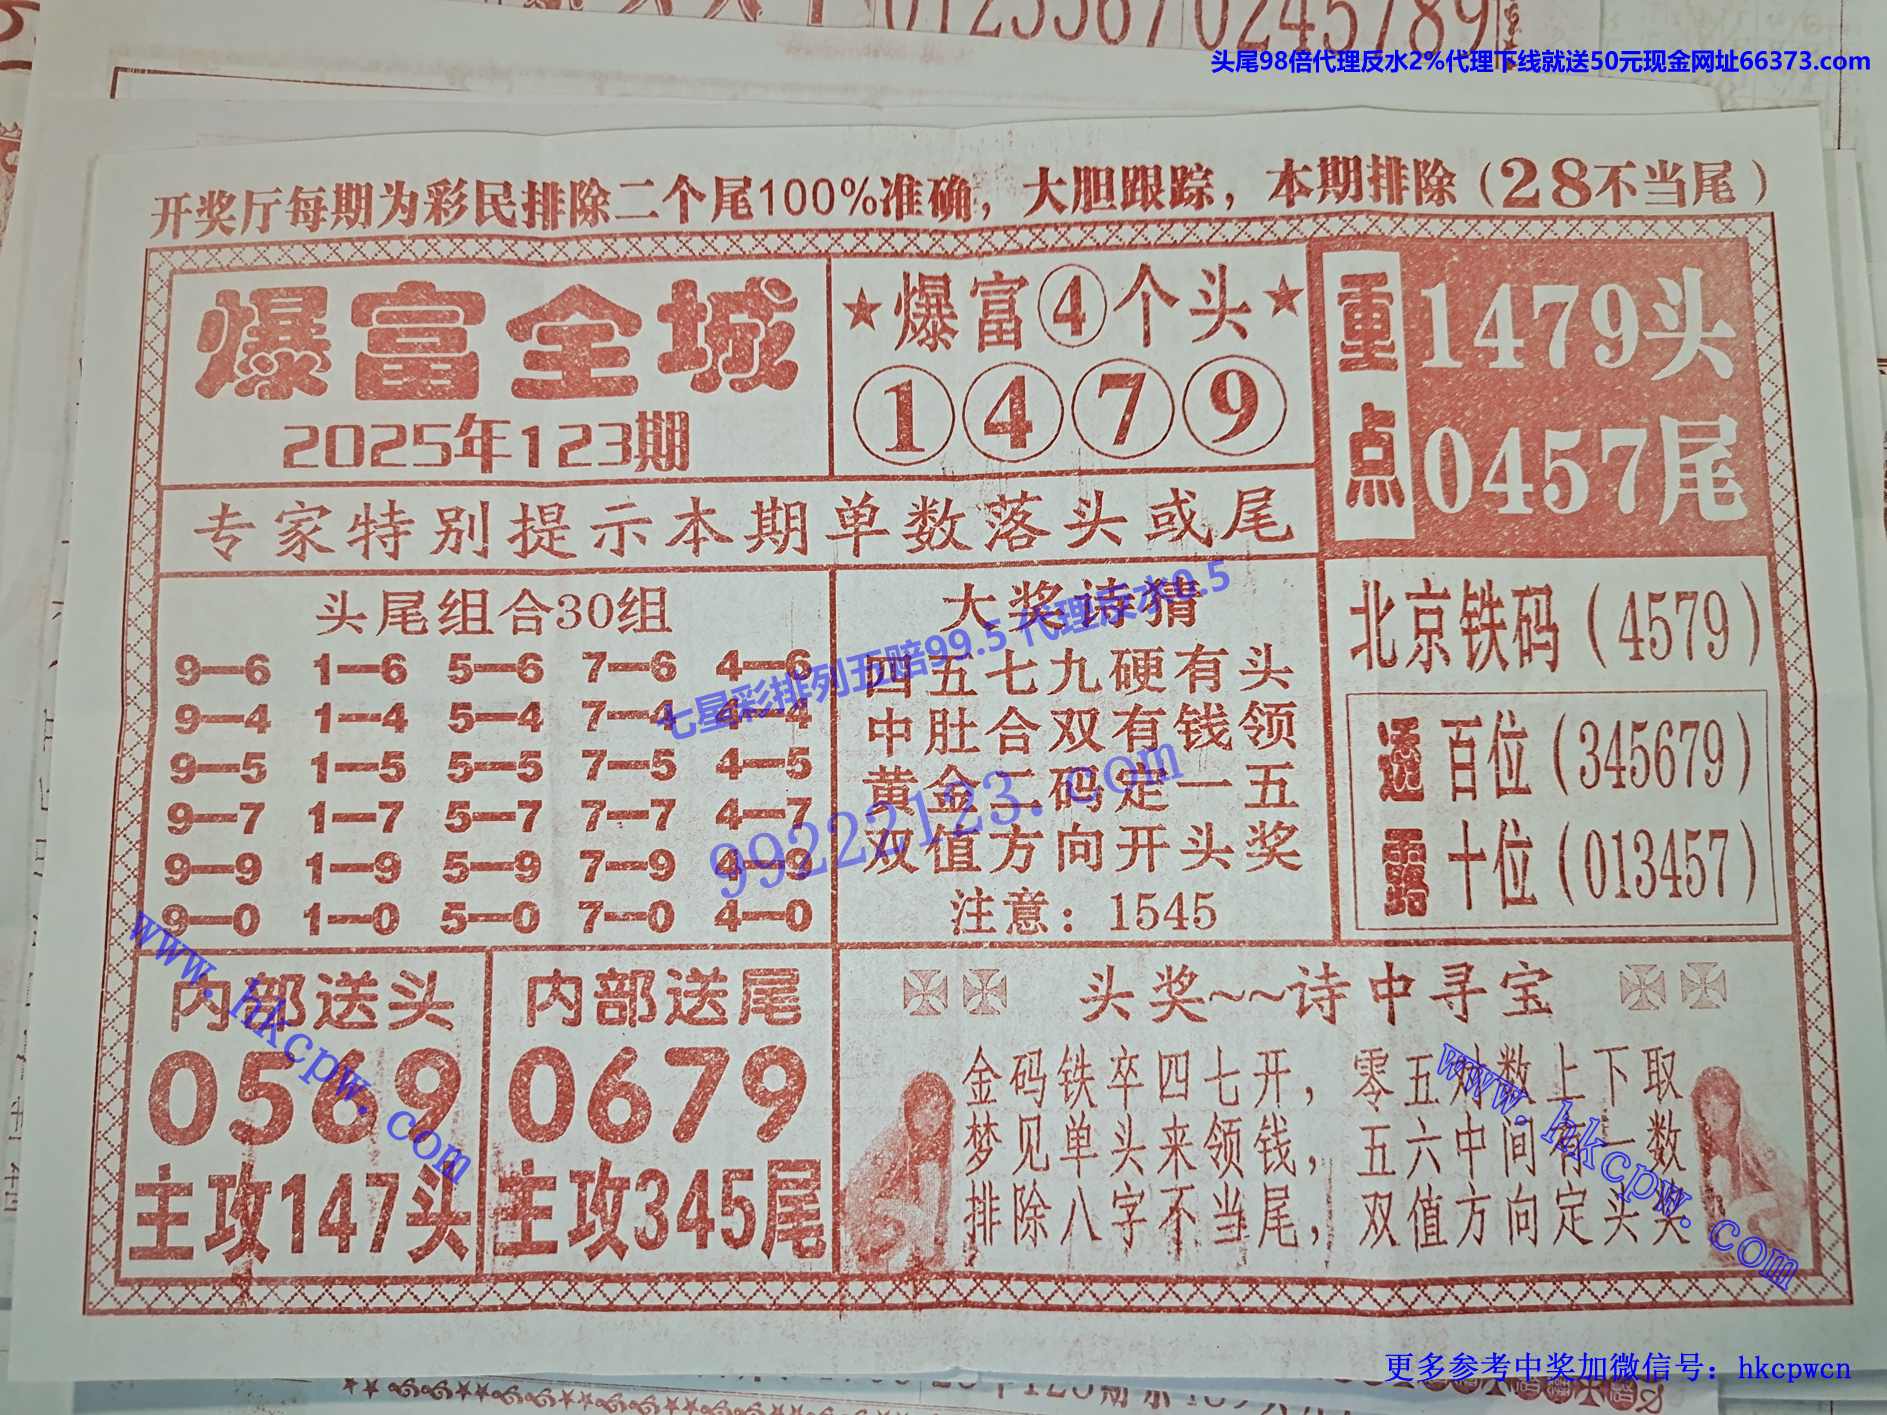 0123567 0245789
头尾98倍代理反水2%代理下线就送50元现金网址66373.com
开奖厅每期为彩民排除二个尾100%准确，大胆跟踪，本期排除（28不当尾）
爆富全城
2025年123期
★爆富④个头★
① ④ ⑦ ⑨
重点
1479头
0457尾
专家特别提示本期单数落头或尾
头尾组合30组
9—6 1—6 5—6 7—6 4—6
9—4 1—4 5—4 7—4 4—4
9—5 1—5 5—5 7—5 4—5
9—7 1—7 5—7 7—7 4—7
9—9 1—9 5—9 7—9 4—9
9—0 1—0 5—0 7—0 4—0
大奖诗猜
四五七九硬有头
中肚合双有钱领
黄金二码定一五
双值方向开头奖
注意：1545
北京铁码（4579）
透露
百位（345679）
十位（013457）
七星彩排列五赔99.5 代理反水0.5
99222123.com
内部送头
0569
主攻147头
内部送尾
0679
主攻345尾
头奖~~诗中寻宝
金码铁卒四七开，零五对数上下取
梦见单头来领钱，五六中间有一数
排除八字不当尾，双值方向定头奖
www.hkcpw.com
www.hkcpw.com
更多参考中奖加微信号：hkcpwcn